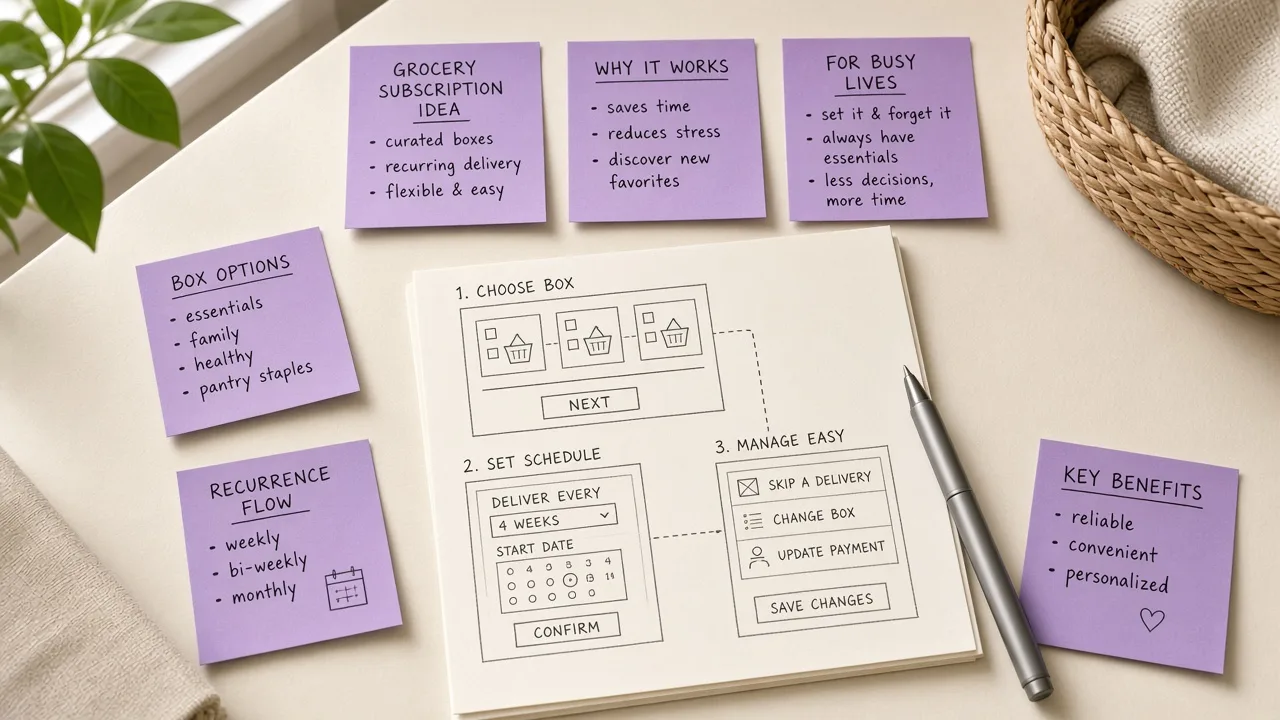 GROCERY
SUBSCRIPTION
IDEA
- curated boxes
- recurring delivery
- flexible & easy
WHY IT WORKS
- saves time
- reduces stress
- discover new
favorites
FOR BUSY
LIVES
- set it & forget it
- always have
essentials
- less decisions,
more time
BOX OPTIONS
- essentials
- family
- healthy
- pantry staples
RECURRENCE
FLOW
- weekly
- bi-weekly
- monthly
1. CHOOSE BOX
NEXT
2. SET SCHEDULE
DELIVER EVERY
4 WEEKS
START DATE
CONFIRM
3. MANAGE EASY
SKIP A DELIVERY
CHANGE BOX
UPDATE PAYMENT
SAVE CHANGES
KEY BENEFITS
- reliable
- convenient
- personalized